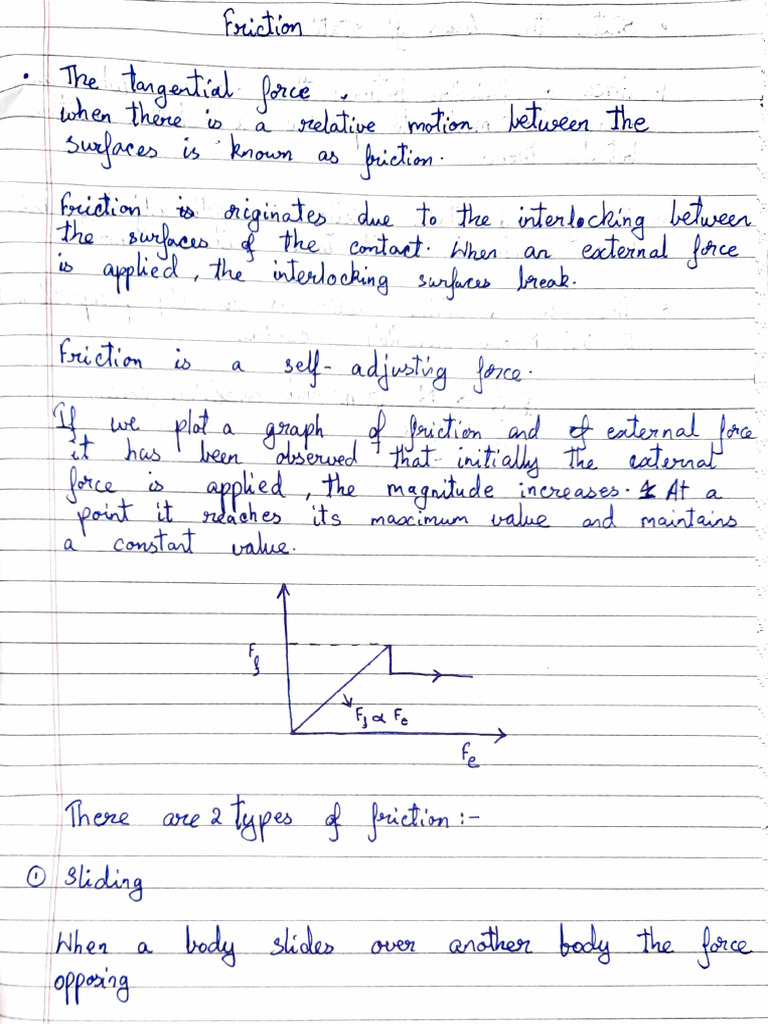 Friction
• The tangential force,
when there is a relative motion between the
surfaces is known as friction.
Friction is originates due to the interlocking between
the surfaces of the contact. When an external force
is applied, the interlocking surfaces break.
Friction is a self-adjusting force.
If we plot a graph of friction and of external force
it has been observed that initially the external
force is applied, the magnitude increases. At a
point it reaches its maximum value and maintains
a constant value.
Ff
Ff ∝ Fe
Fe
There are 2 types of friction :-
① Sliding
When a body slides over another body the force
opposing